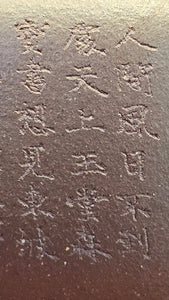 人間風日不到
處天上玉堂森
寶書想見東坡